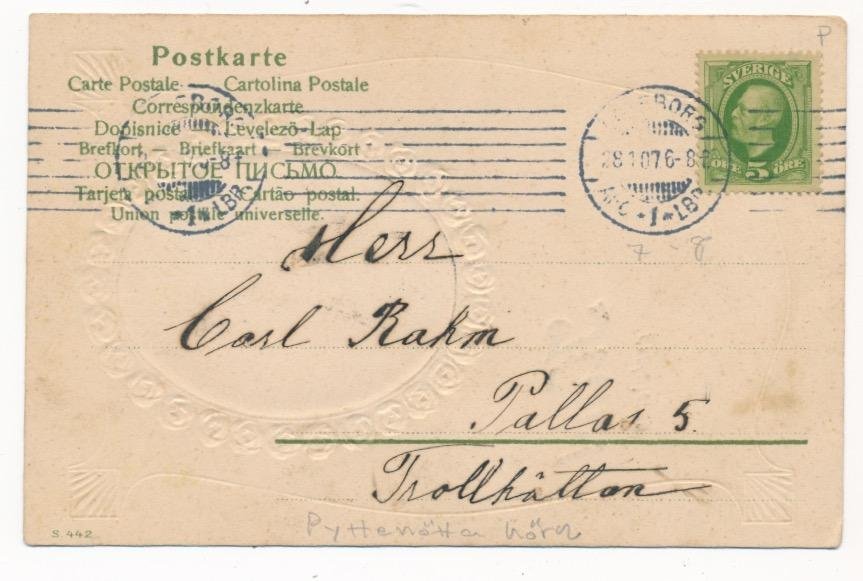 P
Postkarte
Carte Postale Cartolina Postale
Correspondenzkarte
Dopisnice Levelező-Lap
Brefkort - Briefkaart - Brevkort
ОТКРЫТОЕ ПИСЬМО.
Tarjeta postal. Cartão postal.
Union postale universelle.
SVERIGE
ÖRE 5 ÖRE
28 1 07 6-8
1 LBR
7 - 8
Herr
Carl Rahm
Pallas 5.
Trollhättan
S. 442